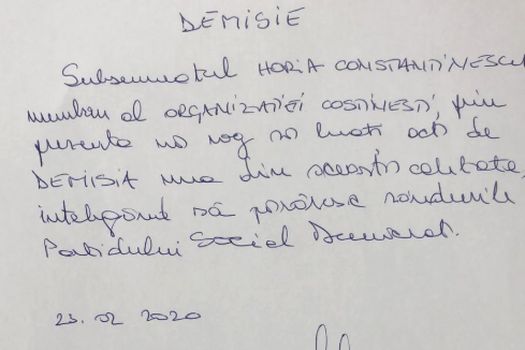 DEMISIE
Subsemnatul HORIA CONSTANTINESCU
membru al ORGANIZAȚIEI COSTINEȘTI, prin
prezenta vă rog să luați act de
DEMISIA mea din această calitate,
înțelegând să părăsesc rândurile
Partidului Social Democrat.
23.02 2020